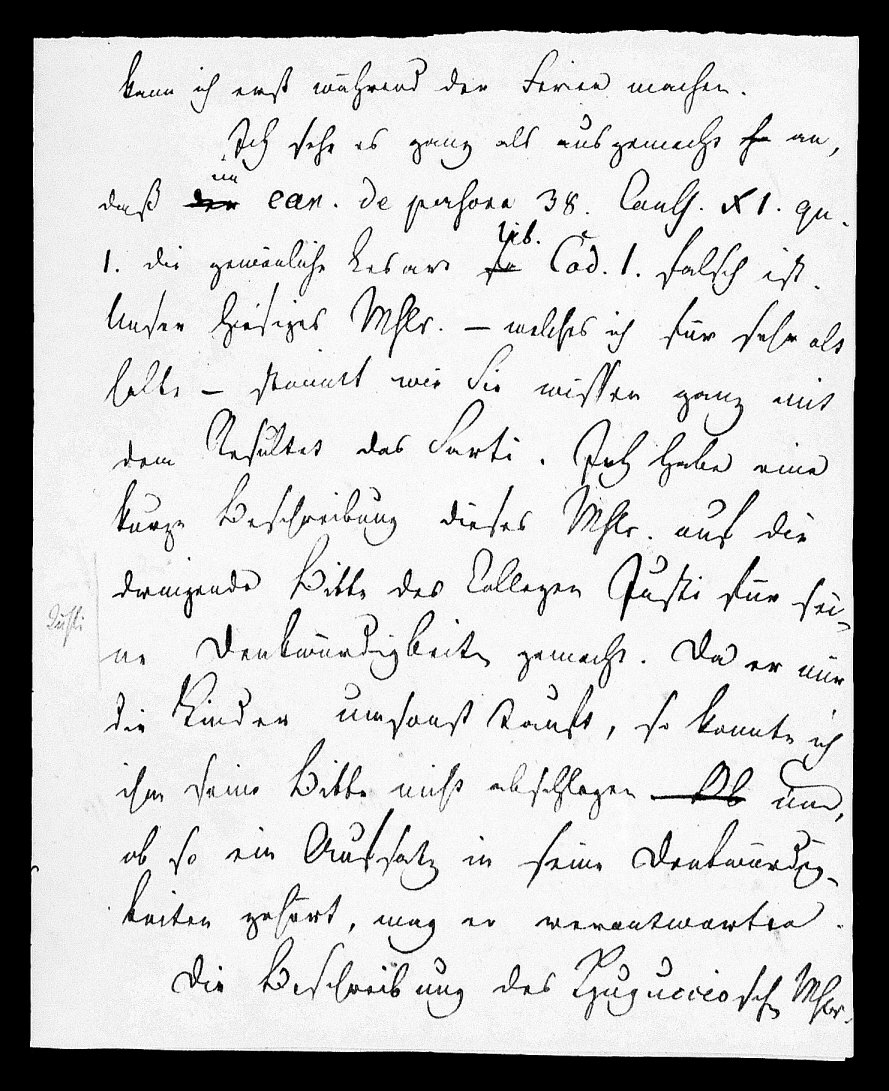 kann ich erst während der Ferien machen.
Ich sehe es ganz als ausgemacht an,
im
daß der can. de persona 38. Cauß. XI. qu.
lib.
1. die gewöhnliche Lesart Cod. 1. falsch ist.
Unser hiesiges Mscr. – welches ich für sehr alt
halte – stimmt wie Sie wissen ganz mit
dem Resultat des Sarti. Ich habe eine
kurze Beschreibung dieses Mscr. auf die
dringende Bitte des Collegen Justi für sei-
Justi
ne Denkwürdigkeiten gemacht. Da er mir
die Kinder umsonst tauft, so konnte ich
ihm seine Bitte nicht abschlagen Ob und,
ob so ein Aufsatz in seine Denkwürdig-
keiten gehört, mag er verantworten.
Die Beschreibung des Huguccioschen Mscr.